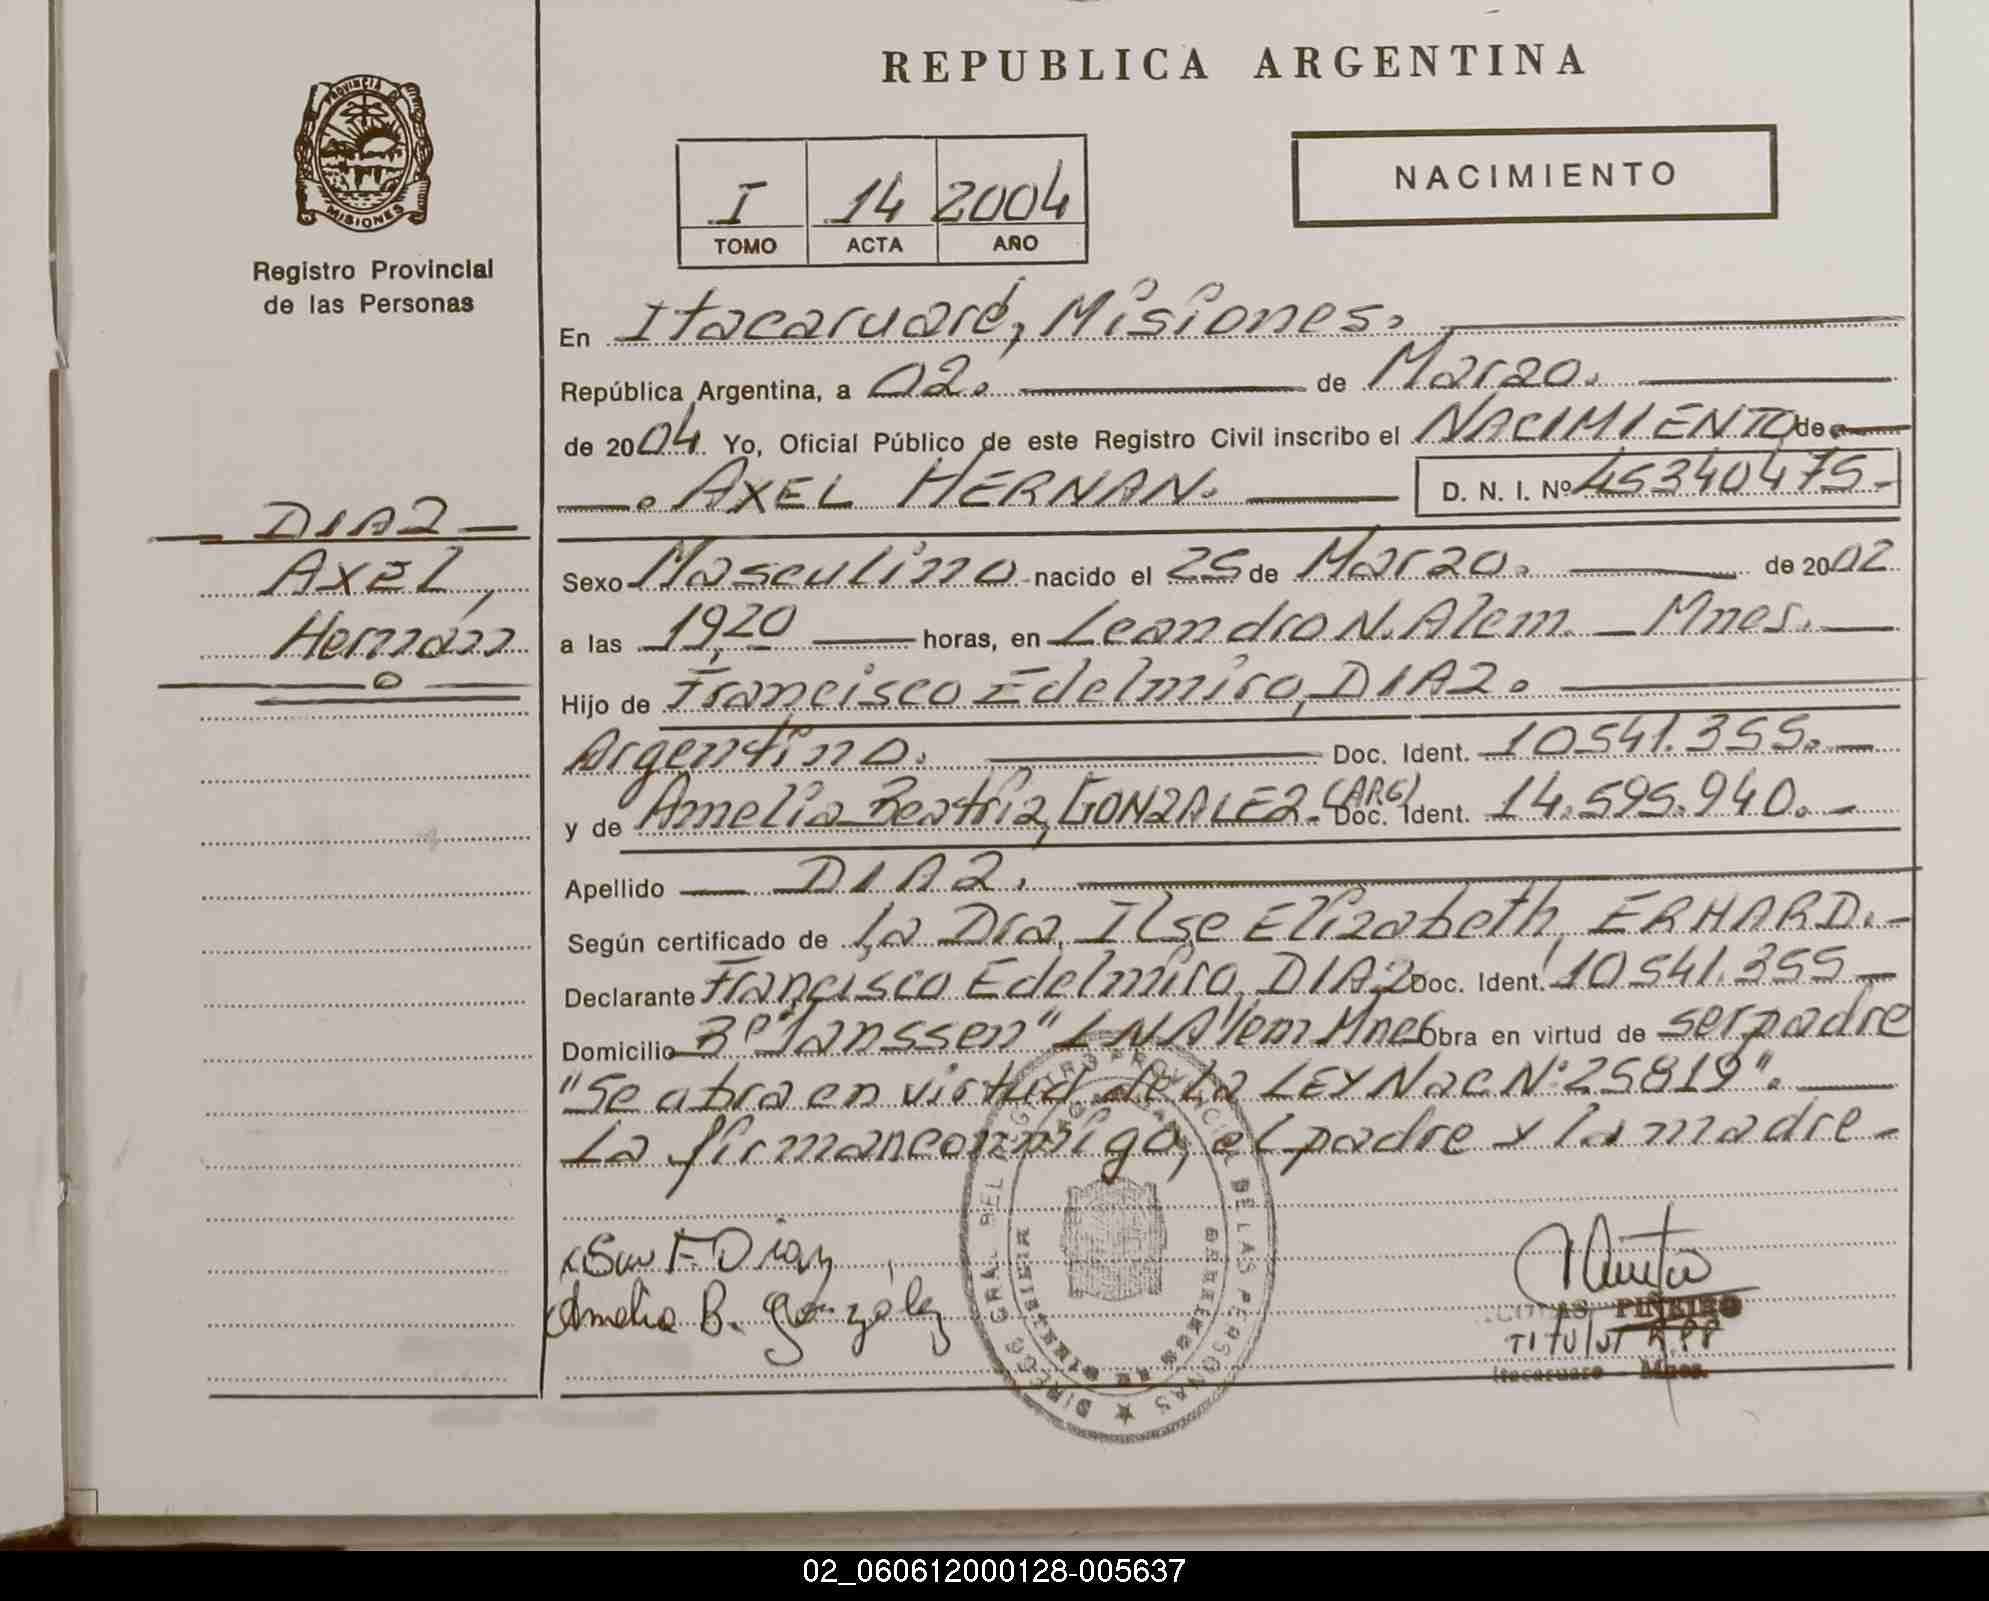 REPUBLICA ARGENTINA
PROVINCIA DE
MISIONES
Registro Provincial
de las Personas
I 14 2004
TOMO ACTA AÑO
NACIMIENTO
En Itacaruaré, Misiones.
República Argentina, a 02. de Marzo.
de 2004 Yo, Oficial Público de este Registro Civil inscribo el NACIMIENTO de
AXEL HERNAN. D. N. I. Nº 45340475.-
DIAZ
AXEL,
Hernán
Sexo Masculino nacido el 25 de Marzo. de 2002
a las 19,20 horas, en Leandro N. Alem. Mnes.
Hijo de Francisco Edelmiro, DIAZ.
Argentino. Doc. Ident. 10541.355.
y de Amelia Beatriz, GONZALEZ. (ARG) Doc. Ident. 14.595.940.
Apellido DIAZ.
Según certificado de La Dra. Ilse Elizabeth ERHARD.
Declarante Francisco Edelmiro, DIAZ Doc. Ident. 10541.355
Domicilio Bº "Janssen" L N Alem Mnes Obra en virtud de ser padre
"Se abra en virtud de la LEY Nac Nº 25819".
La firman conmigo, el padre y la madre
F. Diaz
Amelia B. González
DIRECC GRAL DEL REGISTRO PROVINCIAL DE LAS PERSONAS
PIÑEIRO
Titular RPP
Itacaruare - Mnes.
02_060612000128-005637